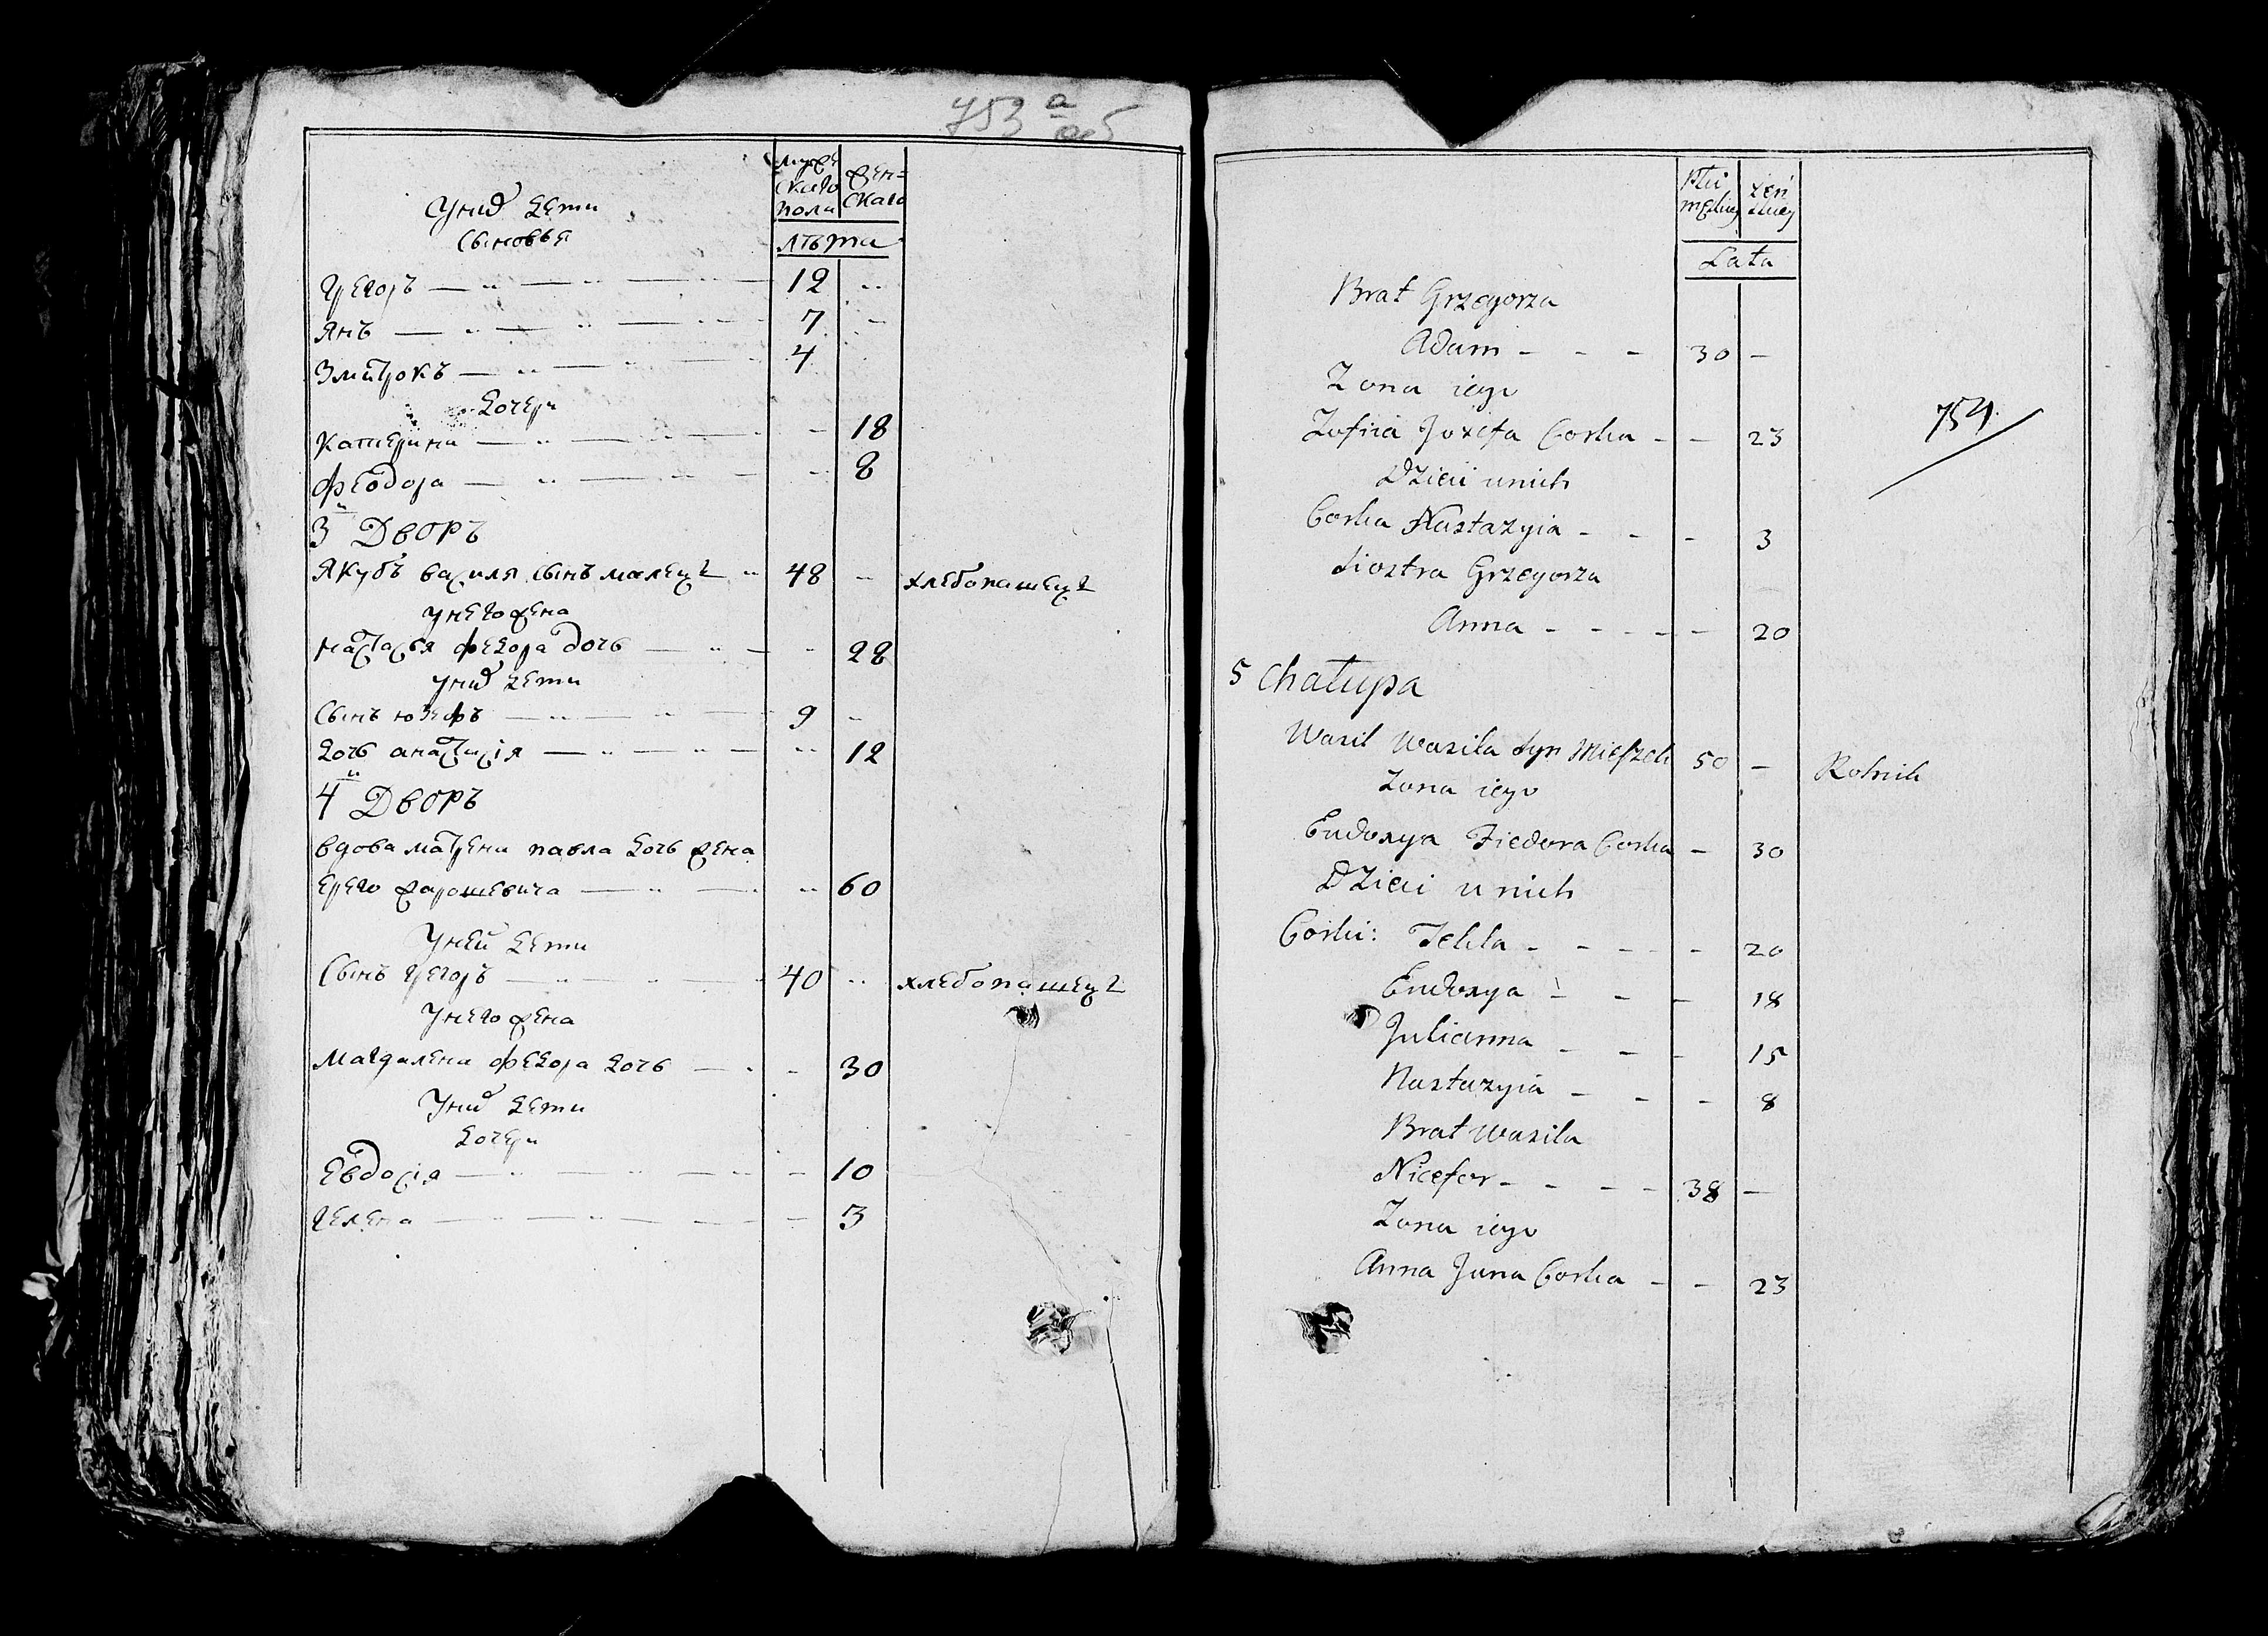 753 а/об
мужскаго пола
женскаго
лѣта
Уних Дети
Сыновья
Грегоръ — 12
Янъ — 7
Змитрокъ — 4
Дочери
Катерина — 18
Феодора — 8
3й Дворъ
Якубъ Василя Сынъ Малецъ 48 хлебопашецъ
у него жена
Настасья Федора дочь — 28
уних дети
Сынъ Юзефъ — 9
Дочь анастасія — 12
4й Дворъ
вдова матрена павла дочь жена
60
Уней Дети
Сынъ Грегоръ — 40 хлебопашецъ
Унего жена
Магдалена Федора дочь — 30
Уних дети
Дочери
Евдосія — 10
Гелена — 3
Płci męskiej
żeńskiej
Lata
Brat Grzegorza
Adam - - - 30 -
Zona iego
754
Zofiia Jozefa Corka - - 23
Dzieci u nich
Corka Nastazyia - - - 3
Siostra Grzegorza
Anna - - - - - 20
5 Chałupa
Wasil Wasila Syn 50 - Rolnik
Zona iego
Eudoxya Fiedora Corka - 30
Dzieci u nich
Corki: Tekla - - - - - 20
Eudoxya - - - 18
Julianna - - - 15
Nastazyia - - - 8
Brat Wasila
Nicefor - - - - 38 -
Zona iego
Anna Jana Corka - - 23